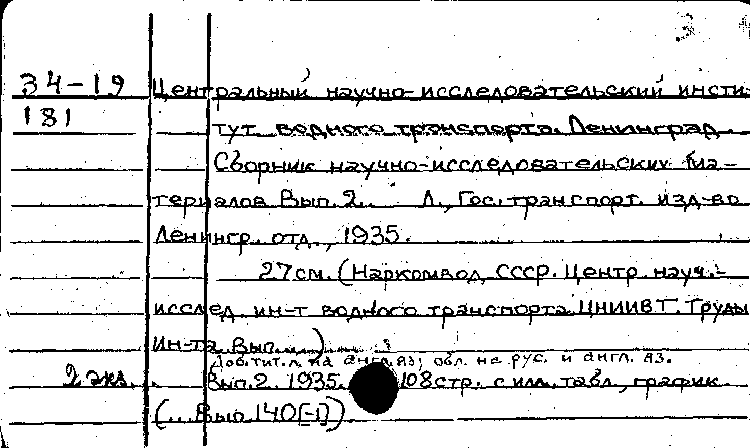 3
34-19 Центральный научно-исследовательский инсти-
181 тут водного транспорта. Ленинград.
Сборник научно-исследовательских ма-
териалов Вып. 2. Л., Гос. транспорт. изд-во
Ленингр. отд., 1935.
27 см. (Наркомвод СССР. Центр. науч.-
исслед. ин-т водного транспорта ЦНИИВТ. Труды
Ин-та. Вып... )
Доб. тит. л. на англ. яз; обл. на рус. и англ. яз.
2 экз. Вып. 2. 1935. 108 стр. с илл. табл., график.
(... Вып. 140[-1]).